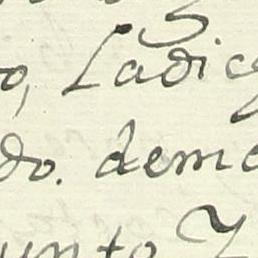 o, Ladic
do. deme
unto Z